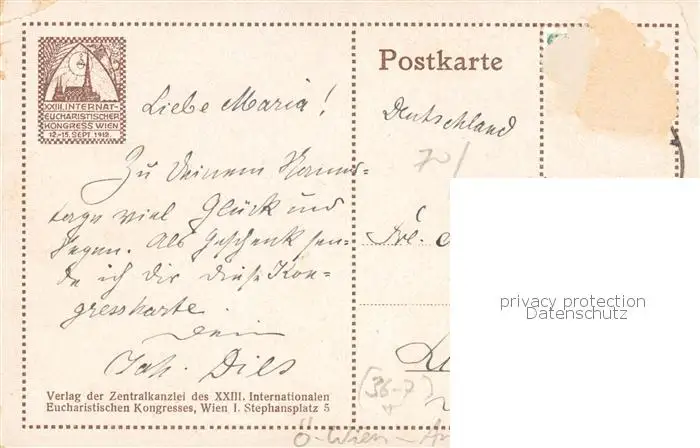 XXIII. INTERNAT-
EUCHARISTISCHER
KONGRESS WIEN
12.-15. SEPT. 1912.
Liebe Maria!
Zu Deinem Namens-
tage viel Glück und
Segen. Als Geschenk sen-
de ich dir diese Kon-
gresskarte.
Dein
Joh. Dils
Verlag der Zentralkanzlei des XXIII. Internationalen
Eucharistischen Kongresses, Wien I. Stephansplatz 5
Postkarte
Deutschland
70/
Frl.
privacy protection
Datenschutz
(36-7)
Ö-Wien